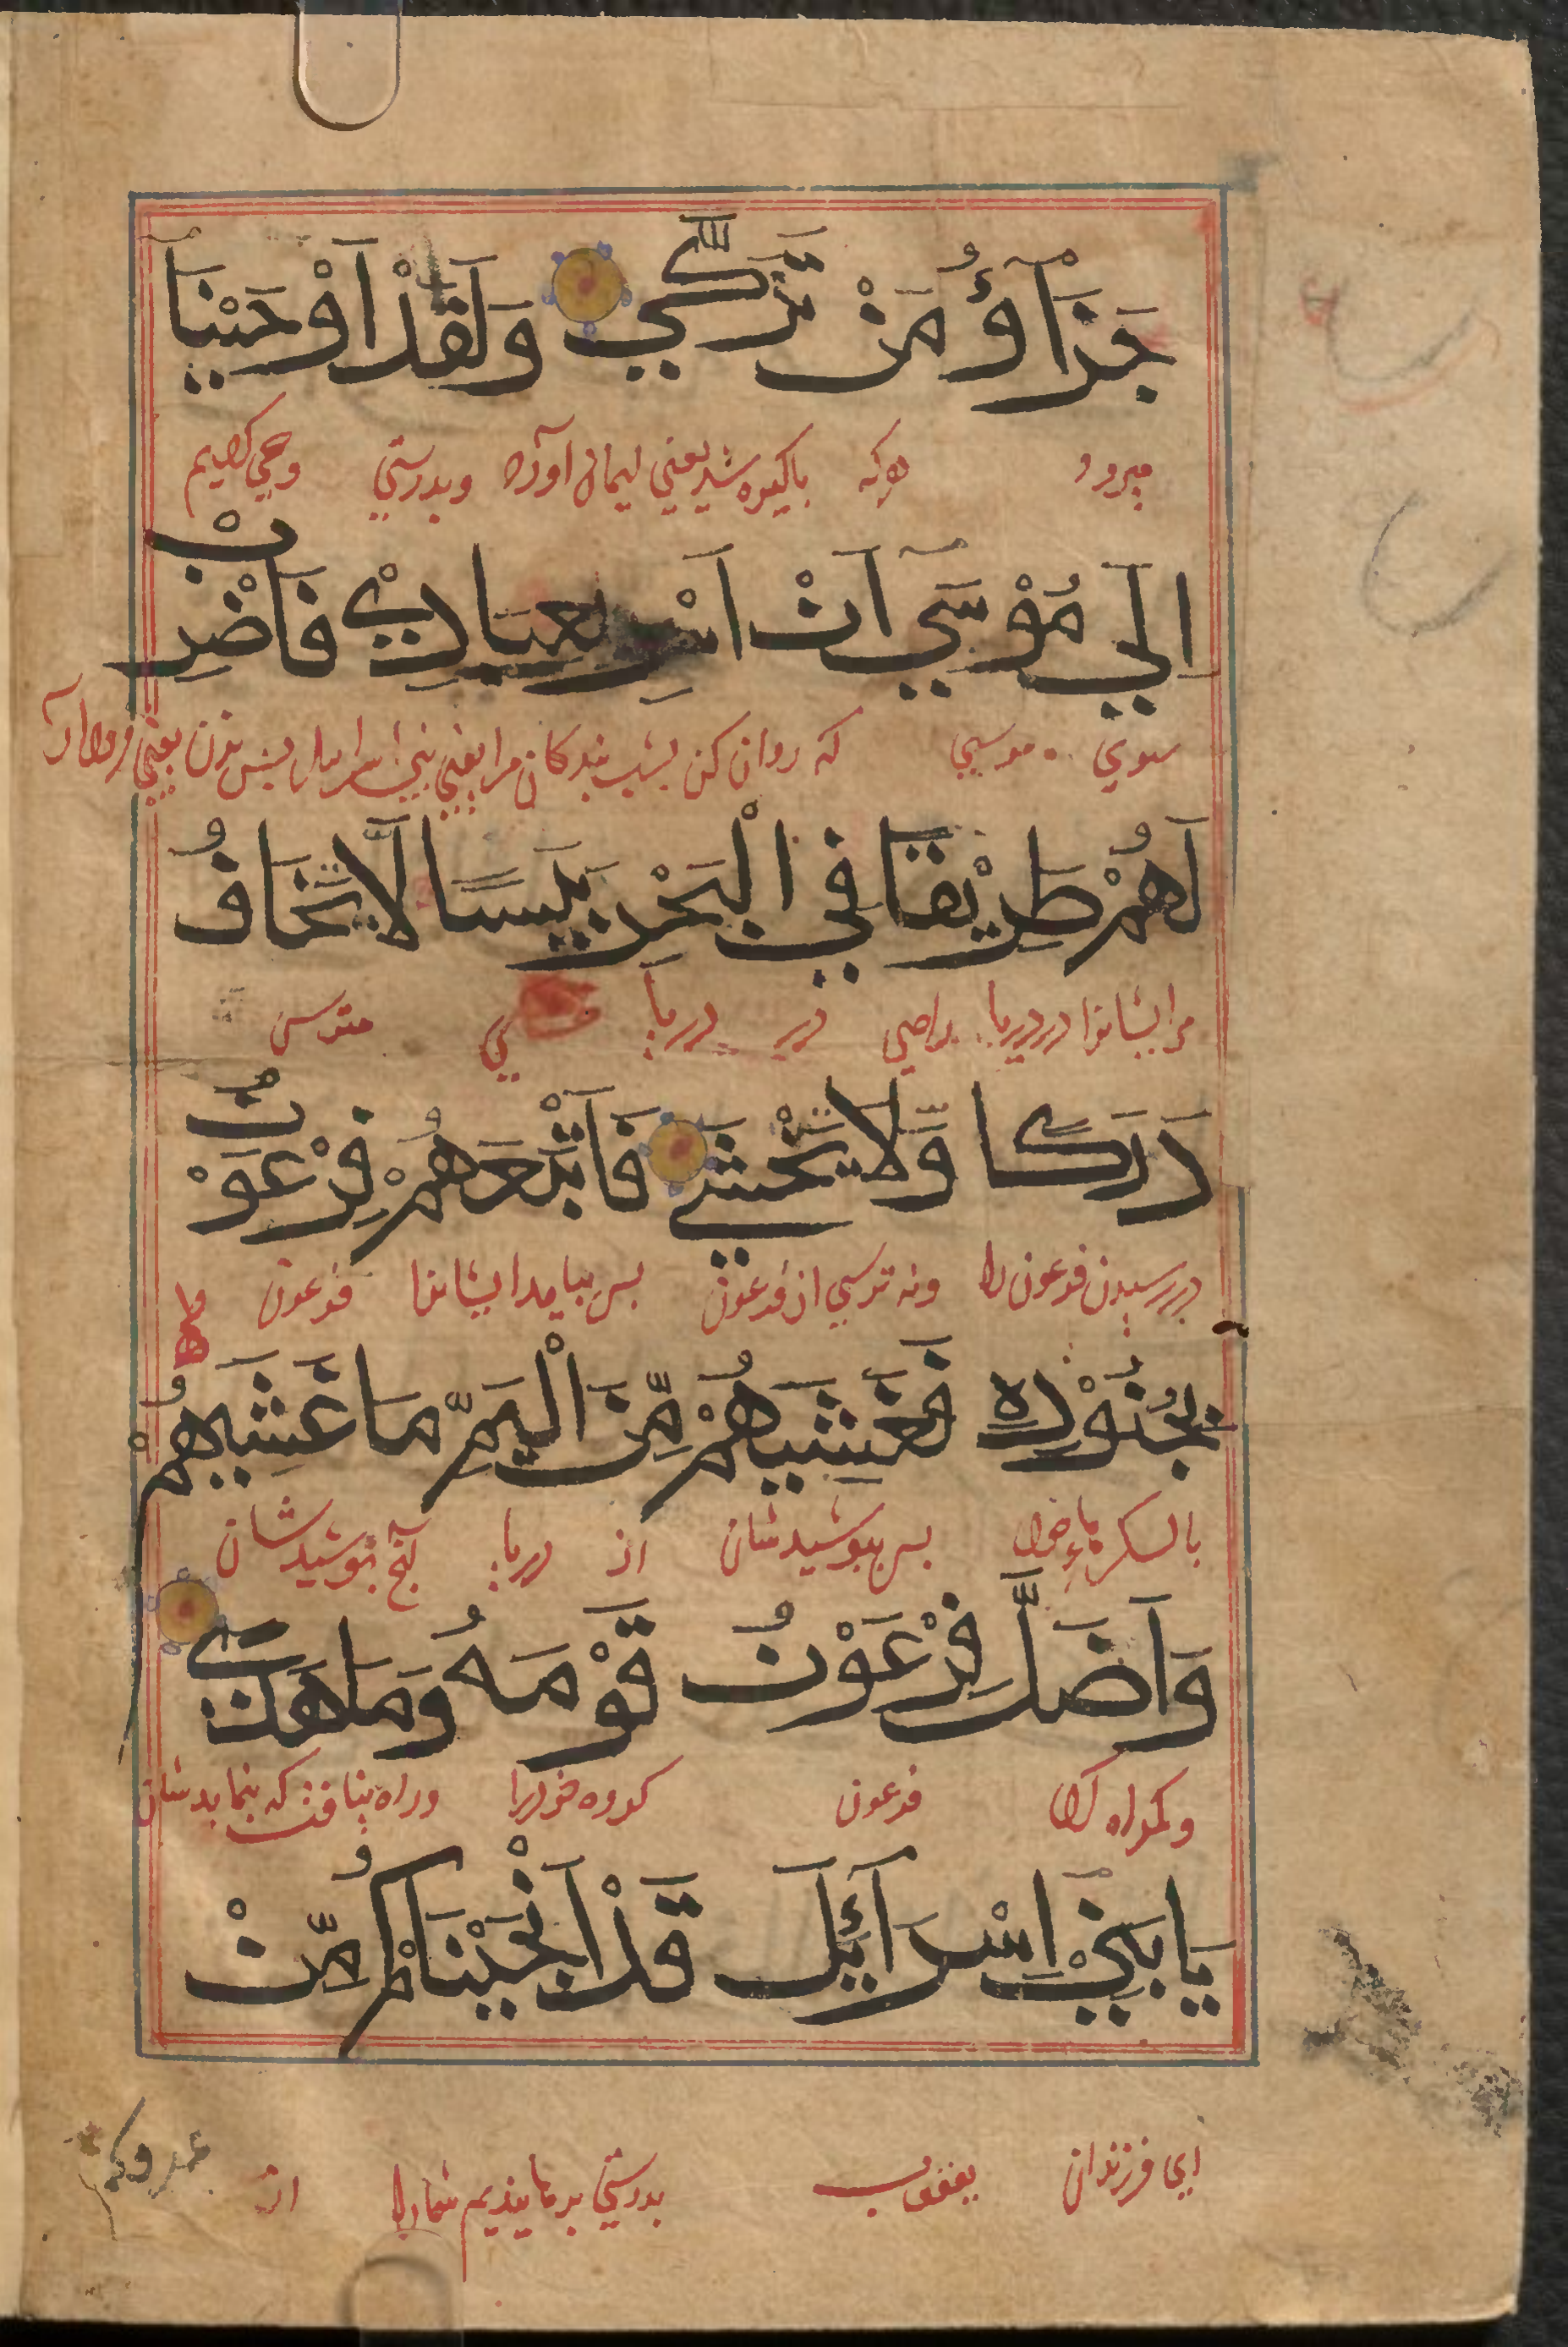 جَزَآؤُ مَنْ تَزَكَّي وَلَقَدْ اَوْحَيْنَا
که باکیزه شد یعني ایمان آورد وبدرستي وحي کردیم
اِلَي مُوْسَي اَنْ اَسْرِ بِعِبَادِيْ فَاضْرِبْ
سوي موسي که روان کن بشب بندکان مرا یعني بني اسرایل بس بزن یعني فرود آر
لَهُمْ طَرِيْقًا فِي الْبَحْرِ يَبَسًا لَّا تَخَافُ
مر ایشانرا در دریا راهي در دریا مترس
دَرَكًا وَّلَا تَخْشَي فَاَتْبَعَهُمْ فِرْعَوْنُ
در رسیدن فرعون را ونه ترسي از فرعون بس بیامد ایشانرا فرعون با
بِجُنُوْدِهٖ فَغَشِيَهُمْ مِّنَ الْيَمِّ مَا غَشِيَهُمْ
بالشکرهاء خود بس ببوشید شان از دریا آنچ ببوشید شان
وَاَضَلَّ فِرْعَوْنُ قَوْمَهُ وَمَا هَدَي
وکمراه کرد فرعون کروه خود را وراه نیافت که بنماید شان
يَا بَنِيْ اِسْرَآئِيْلَ قَدْ اَنْجَيْنَاكُمْ مِّنْ
اي فرزندان یعقوب بدرستي برهانیدیم شما را از
عدوكم